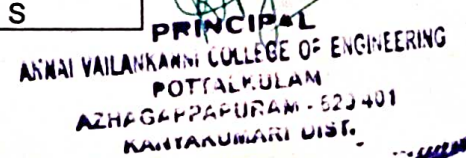 S
PRINCIPAL
ANNAI VAILANKANNI COLLEGE OF ENGINEERING
POTTALKULAM
AZHAGAPPAPURAM - 629 401
KANYAKUMARI DIST.